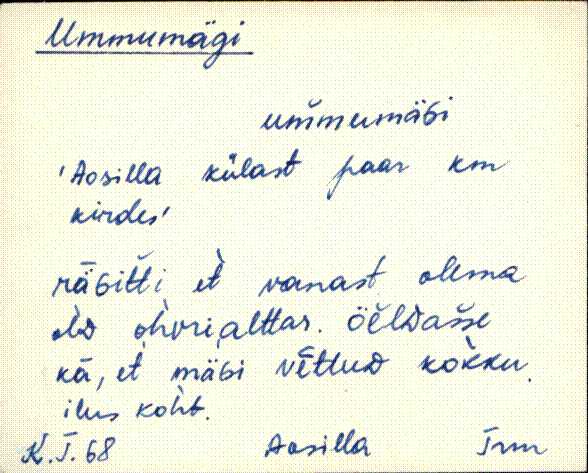 Ummumägi
um̆mumäGi
'Aosilla külast paar km
kirdes'
räGit̆ti et̀ vanast olema
old̀ ohvri,alttar. öĕlDaš̆še
kà, et̀ mäGi vēttuD kòkku.
ilus koht̀.
K. T. 68 Aosilla Irm